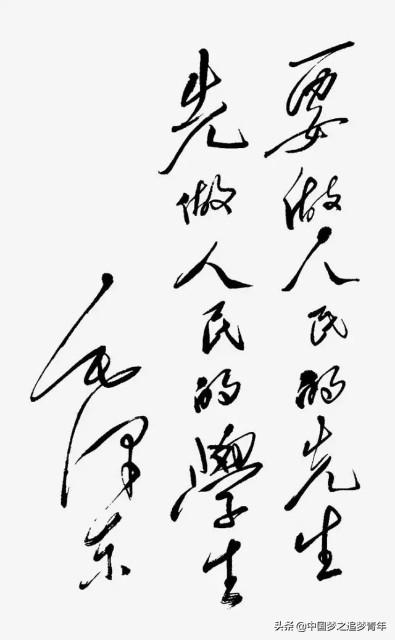 要做人民的先生
先做人民的學生
毛泽东
头条 @中国梦之追梦青年